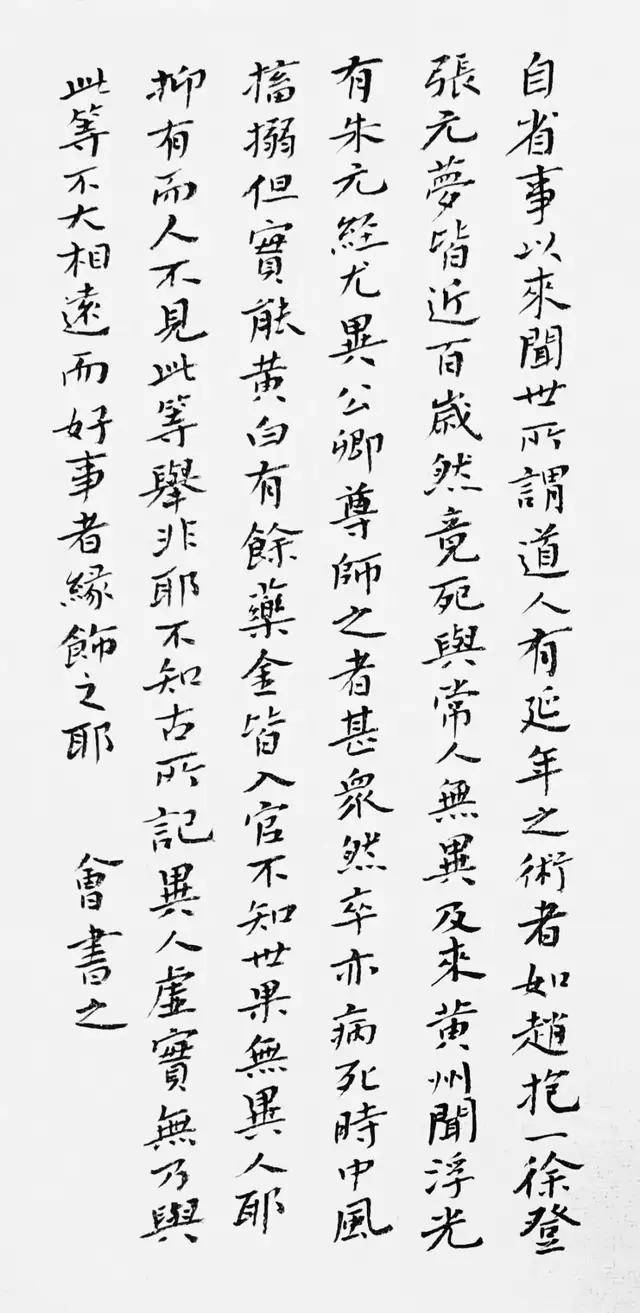 自省事以來聞世所謂道人有延年之術者如趙抱一徐登
張元夢皆近百歲然竟死與常人無異及來黃州聞浮光
有朱元經尤異公卿尊師之者甚衆然卒亦病死時中風
搐搦但實能黃白有餘藥金皆入官不知世果無異人耶
抑有而人不見此等舉非耶不知古所記異人虛實無乃與
此等不大相遠而好事者緣飾之耶 會書之